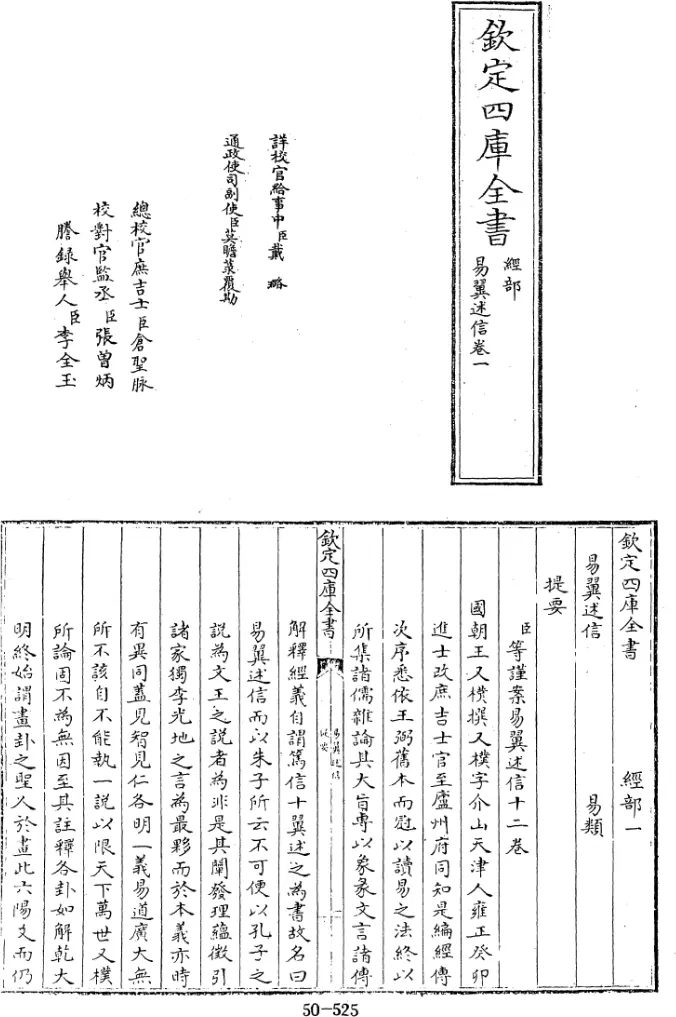 欽定四庫全書
經部
易翼述信卷一
詳校官給事中臣戴璐
通政使司副使臣莫瞻菉覆勘
總校官庶吉士臣倉聖脉
校對官監丞臣張曾炳
謄錄舉人臣李全玉
欽定四庫全書 經部一
易翼述信 易類
提要
臣等謹案易翼述信十二卷
國朝王又樸撰又樸字介山天津人雍正癸卯
進士改庶吉士官至廬州府同知是編經傳
次序悉依王弼舊本而冠以讀易之法終以
所集諸儒雜論其大旨專以彖象文言諸傳
欽定四庫全書
易翼述信
提要
解釋經義自謂篤信十翼述之為書故名曰
易翼述信而以朱子所云不可便以孔子之
說為文王之說者為非是其闡發理蘊徵引
諸家獨李光地之言為最夥而於本義亦時
有異同蓋見智見仁各明一義易道廣大無
所不該自不能執一說以限天下萬世又樸
所論固不為無因至其註釋各卦如解乾大
明終始謂畫卦之聖人於畫此六陽爻而仍
50-525